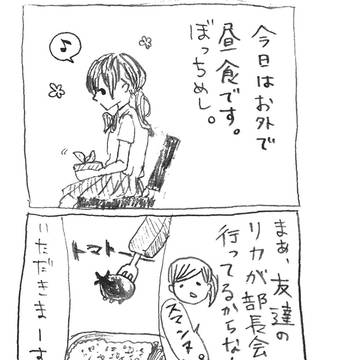 今日はお外で
昼食です。
ぼっちめし。
♪
まぁ、友達の
リカが部長会
行ってるからな
スマンネ。
トマトー
いただきまーす